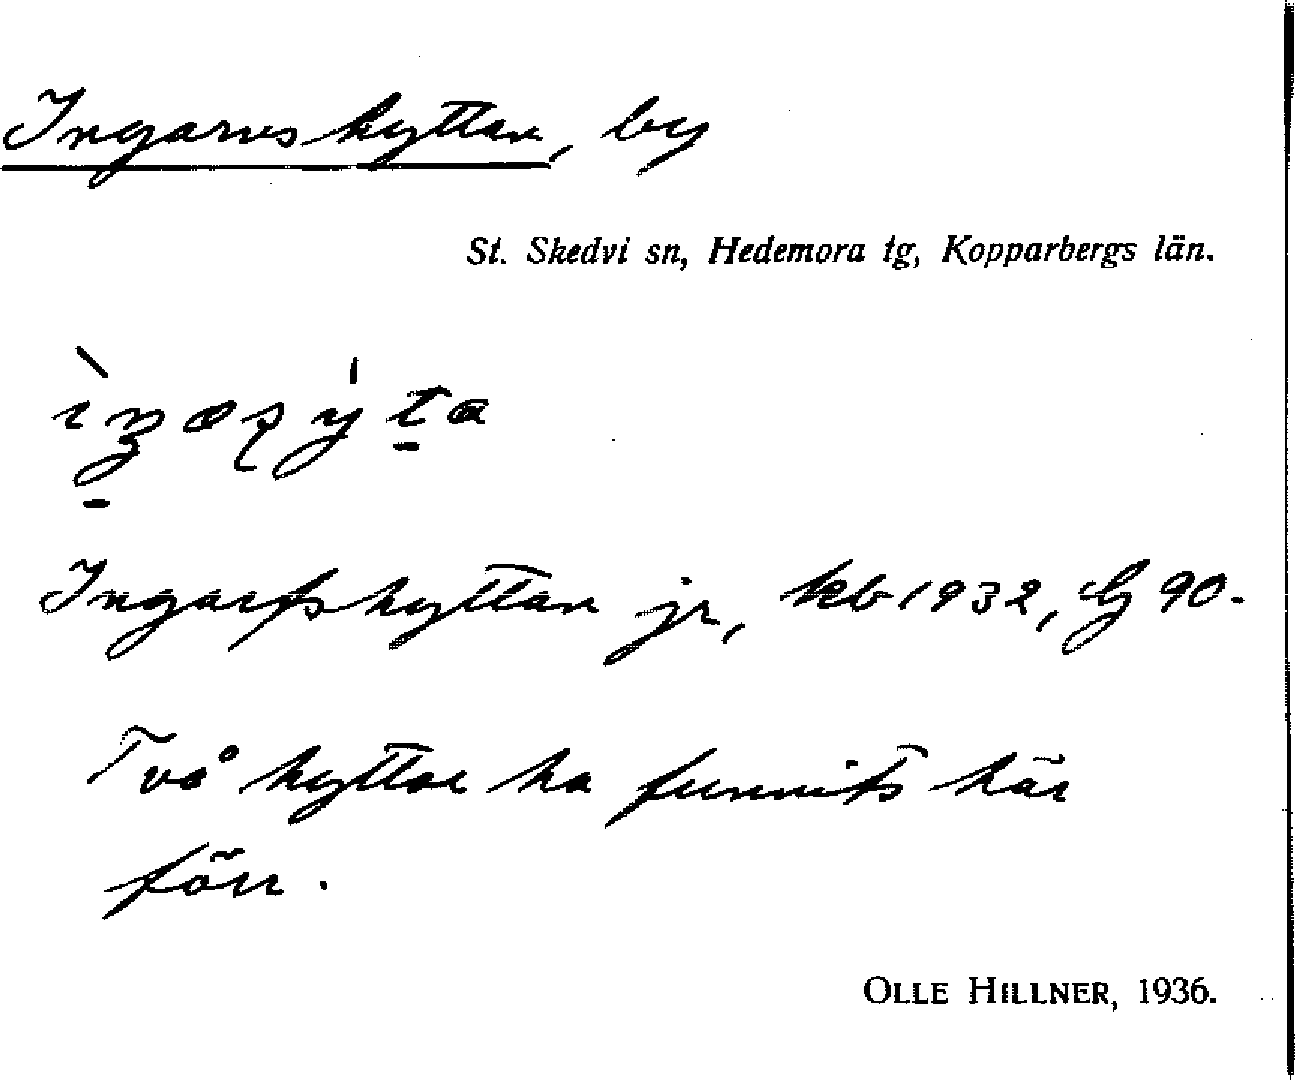 Ingarvshyttan, by
St. Skedvi sn, Hedemora tg, Kopparbergs län.
Ingarfshyttan jr, kb 1932, G 90.
Två hyttor ha funnits här
förr.
OLLE HILLNER, 1936.